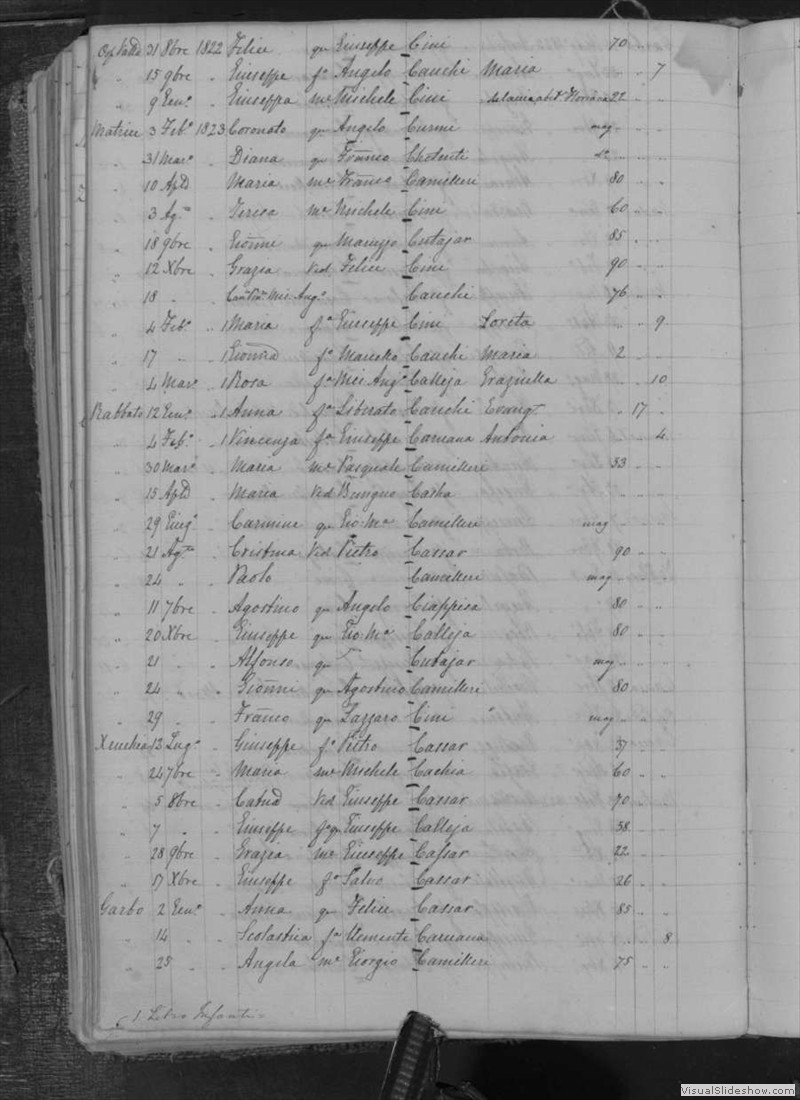 31 8bre 1822 Felice qu Giuseppe Cini 70
" 15 9bre " Giuseppe fo Angelo Cauchi Maria 7
" 9 Genn. " Giuseppa me Michele Cini 22
Matrice 3 Febo 1823 Coronato qu Angelo Curmi mag.
" 31 Maro " Diana qu Franco Chetcuti
" 10 Aple " Maria me Franco Camilleri 80
" 3 Ago " Teresa me Michele Cini 60
" 18 9bre " Gionni qu Maruzzo Cutajar 85
" 12 Xbre " Grazia Ved Felice Cini 90
" 18 " Mic. Ango Cauchi 76
" 4 Febo " 1 Maria fa Giuseppe Cini Loreta 9
" 17 " " 1 fo Cauchi Maria 2
" 4 Maro 1 Rosa fa Mic. Ango Calleja Graziulla 10
Rabbato 12 Geno " 1 Anna fa Liberato Cauchi 17
" 4 Febo " 1 Vincenza fa Giuseppe Caruana Antonia 4
" 30 Maro " Maria me Pasquale Camilleri 33
" 15 Aple " Maria Ved Cachia
" 29 Giugo " Carmine qu Gio Ma Camilleri mag
" 21 Ago " Cristina Ved Pietro Cassar 90
" 24 " " Paolo Camilleri mag
" 11 7bre " Agostino qu Angelo Ciappisa 80
" 20 Xbre " Giuseppe qu Gio Ma Calleja 80
" 21 " " Alfonso qu Cutajar mag
" 24 " " Gionni qu Agostino Camilleri 80
" 29 " " Franco qu Lazzaro Cini mag
Xeuchia 13 Lugo " Giuseppe fo Pietro Cassar 37
" 24 7bre " Maria me Michele Cachia 60
" 5 8bre " Catna Ved Giuseppe Cassar 70
" 7 " " Giuseppe fo qu Giuseppe Calleja 58
" 28 9bre " Grazia me Giuseppe Cassar 22
" 17 Xbre " Giuseppe fo Salvo Cassar 26
Garbo 2 Geno " Anna qu Felice Cassar 85
" 14 " " Scolastica fa Clemente Caruana 8
" 25 " " Angela me Giorgio Camilleri 75
1 Libro Infanti
VisualSlideshow.com